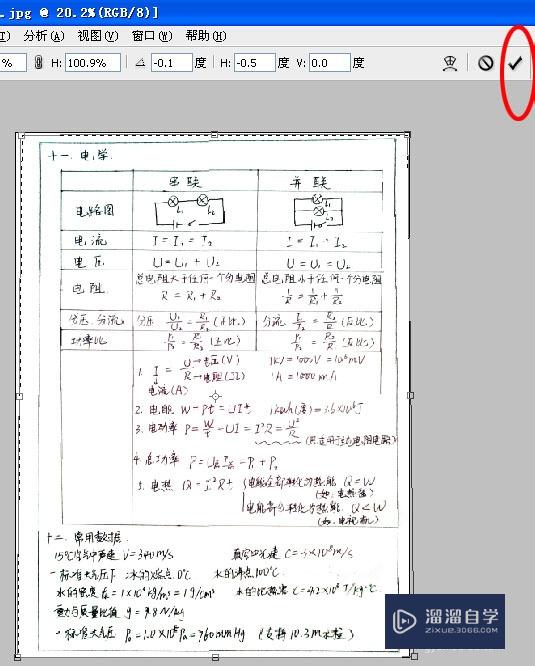 .jpg @ 20.2%(RGB/8)]
分析(A) 视图(V) 窗口(W) 帮助(H)
% H: 100.9% -0.1 度 H: -0.5 度 V: 0.0 度
十一. 电学.
串联 并联
电路图 L₁ L₂
电流 I = I₁ = I₂
电压 U = U₁ + U₂ U = U₁ = U₂
电阻 总电阻大于任何一个分电阻 总电阻小于任何一个分电阻
R = R₁ + R₂ 1/R = 1/R₁ + 1/R₂
分压.分流 分压 U₁/U₂ = R₁/R₂ (正比) 分流 (反比)
功率比 (正比) (反比)
1. I = U→电压(V) / R→电阻(Ω) 1kV = 1000V = 10⁶mV
电流(A) 1A = 1000mA
2. 电能 W = Pt = UIt 1kWh(度) = 3.6×10⁶J
3. 电功率 P = W/t = UI = I²R = U²/R
4. 总功率
5. 电热 Q = I²Rt 电能全部转化为热能 Q = W
(如:电热器)
电能部分转化为热能 Q < W
(如:电视机)
十二. 常用数据.
15℃空气中声速 V = 340m/s 真空中光速 C = 3×10⁸m/s
一标准大气压下 冰的熔点 0℃ 水的沸点 100℃
水的密度 = 1×10³kg/m³ = 1g/cm³ 水的比热容 C = 4.2×10³J/kg·℃
重力与质量比值 g = 9.8N/kg
一标准大气压 P₀ = 1.0×10⁵Pa = 760mmHg (支持10.3m水柱)
溜溜自学
ZIXUE.3D66.COM